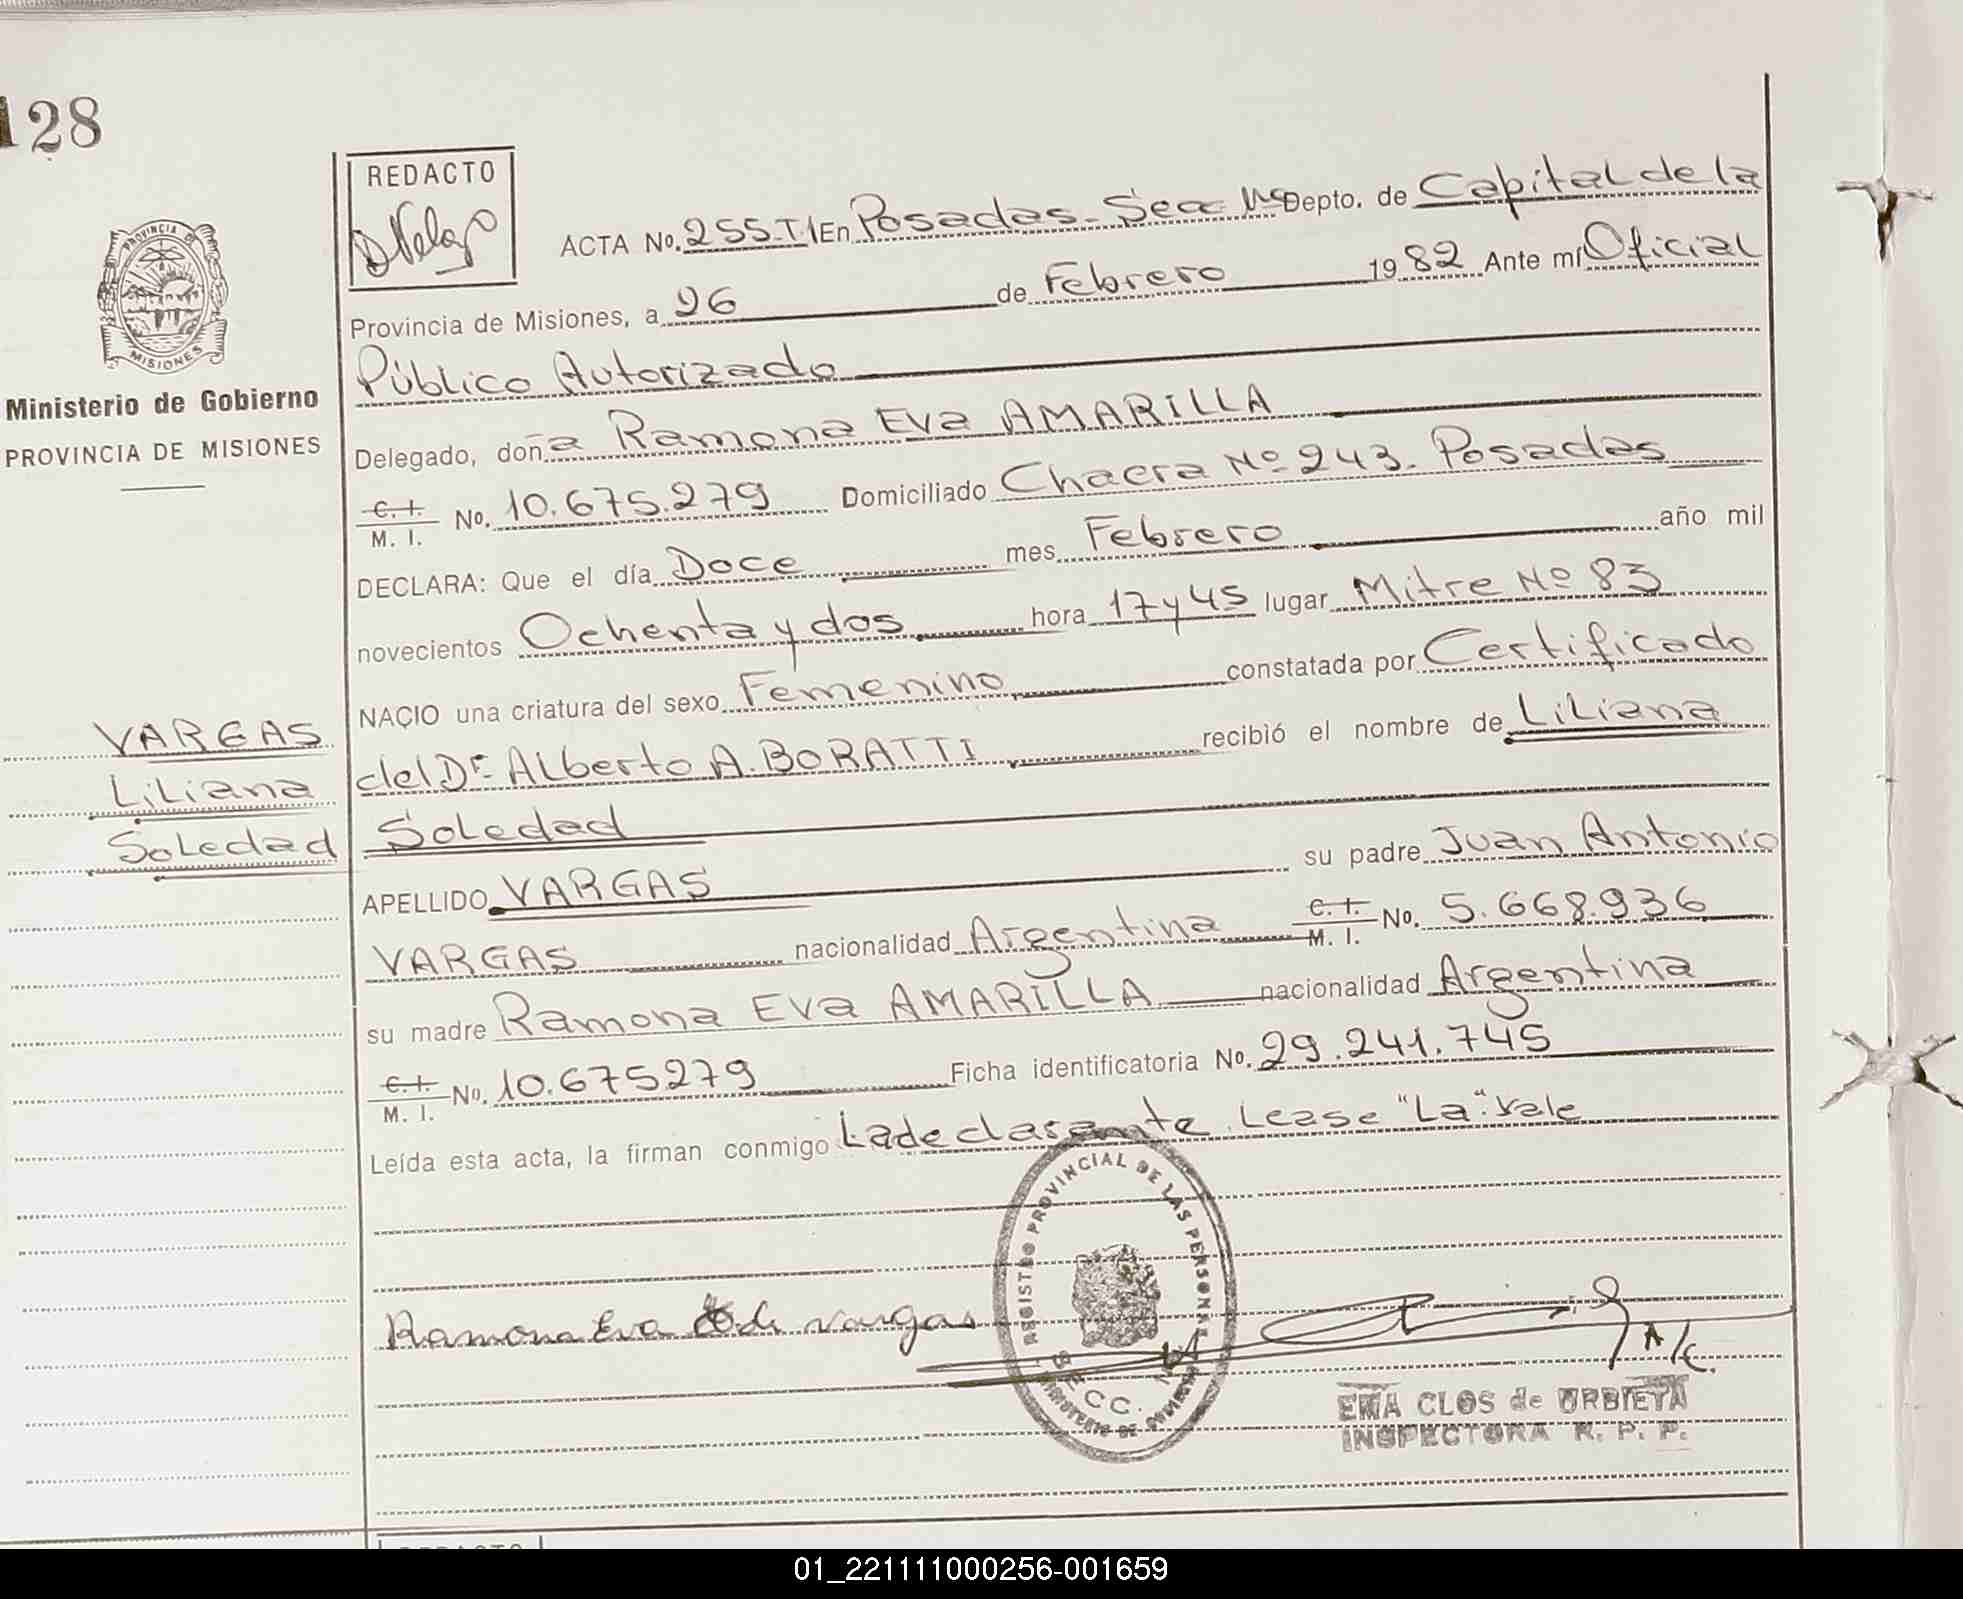 128
REDACTO
ACTA No. 255-T.I En Posadas-Secc Depto. de Capital de la
Provincia de Misiones, a 26 de Febrero 1982 Ante mí Oficial
Público Autorizado
Delegado, doña Ramona Eva AMARILLA
C. I. / M. I. No. 10.675.279 Domiciliado Chacra Nº 243. Posadas
DECLARA: Que el día Doce mes Febrero año mil
novecientos Ochenta y dos hora 17 y 45 lugar Mitre Nº 83
NACIO una criatura del sexo Femenino constatada por Certificado
del Dr. ALberto A. BORATTI recibió el nombre de LiLiana
SoLedad
APELLIDO VARGAS su padre Juan Antonio
VARGAS nacionalidad Argentina C. I. / M. I. No. 5.668.936
su madre Ramona Eva AMARILLA nacionalidad Argentina
C. I. / M. I. No. 10.675279 Ficha identificatoria No. 29.241.745
Leída esta acta, la firman conmigo La declarante. Lease "La". Vale
PROVINCIA DE MISIONES
Ministerio de Gobierno
PROVINCIA DE MISIONES
VARGAS
LiLiana
SoLedad
REGISTRO PROVINCIAL DE LAS PERSONAS
MINISTERIO DE GOBIERNO
SECC.
Ramona Eva de Vargas
A/C.
EMA CLOS de URBIETA
INSPECTORA R. P. P.
REDACTO
01_221111000256-001659